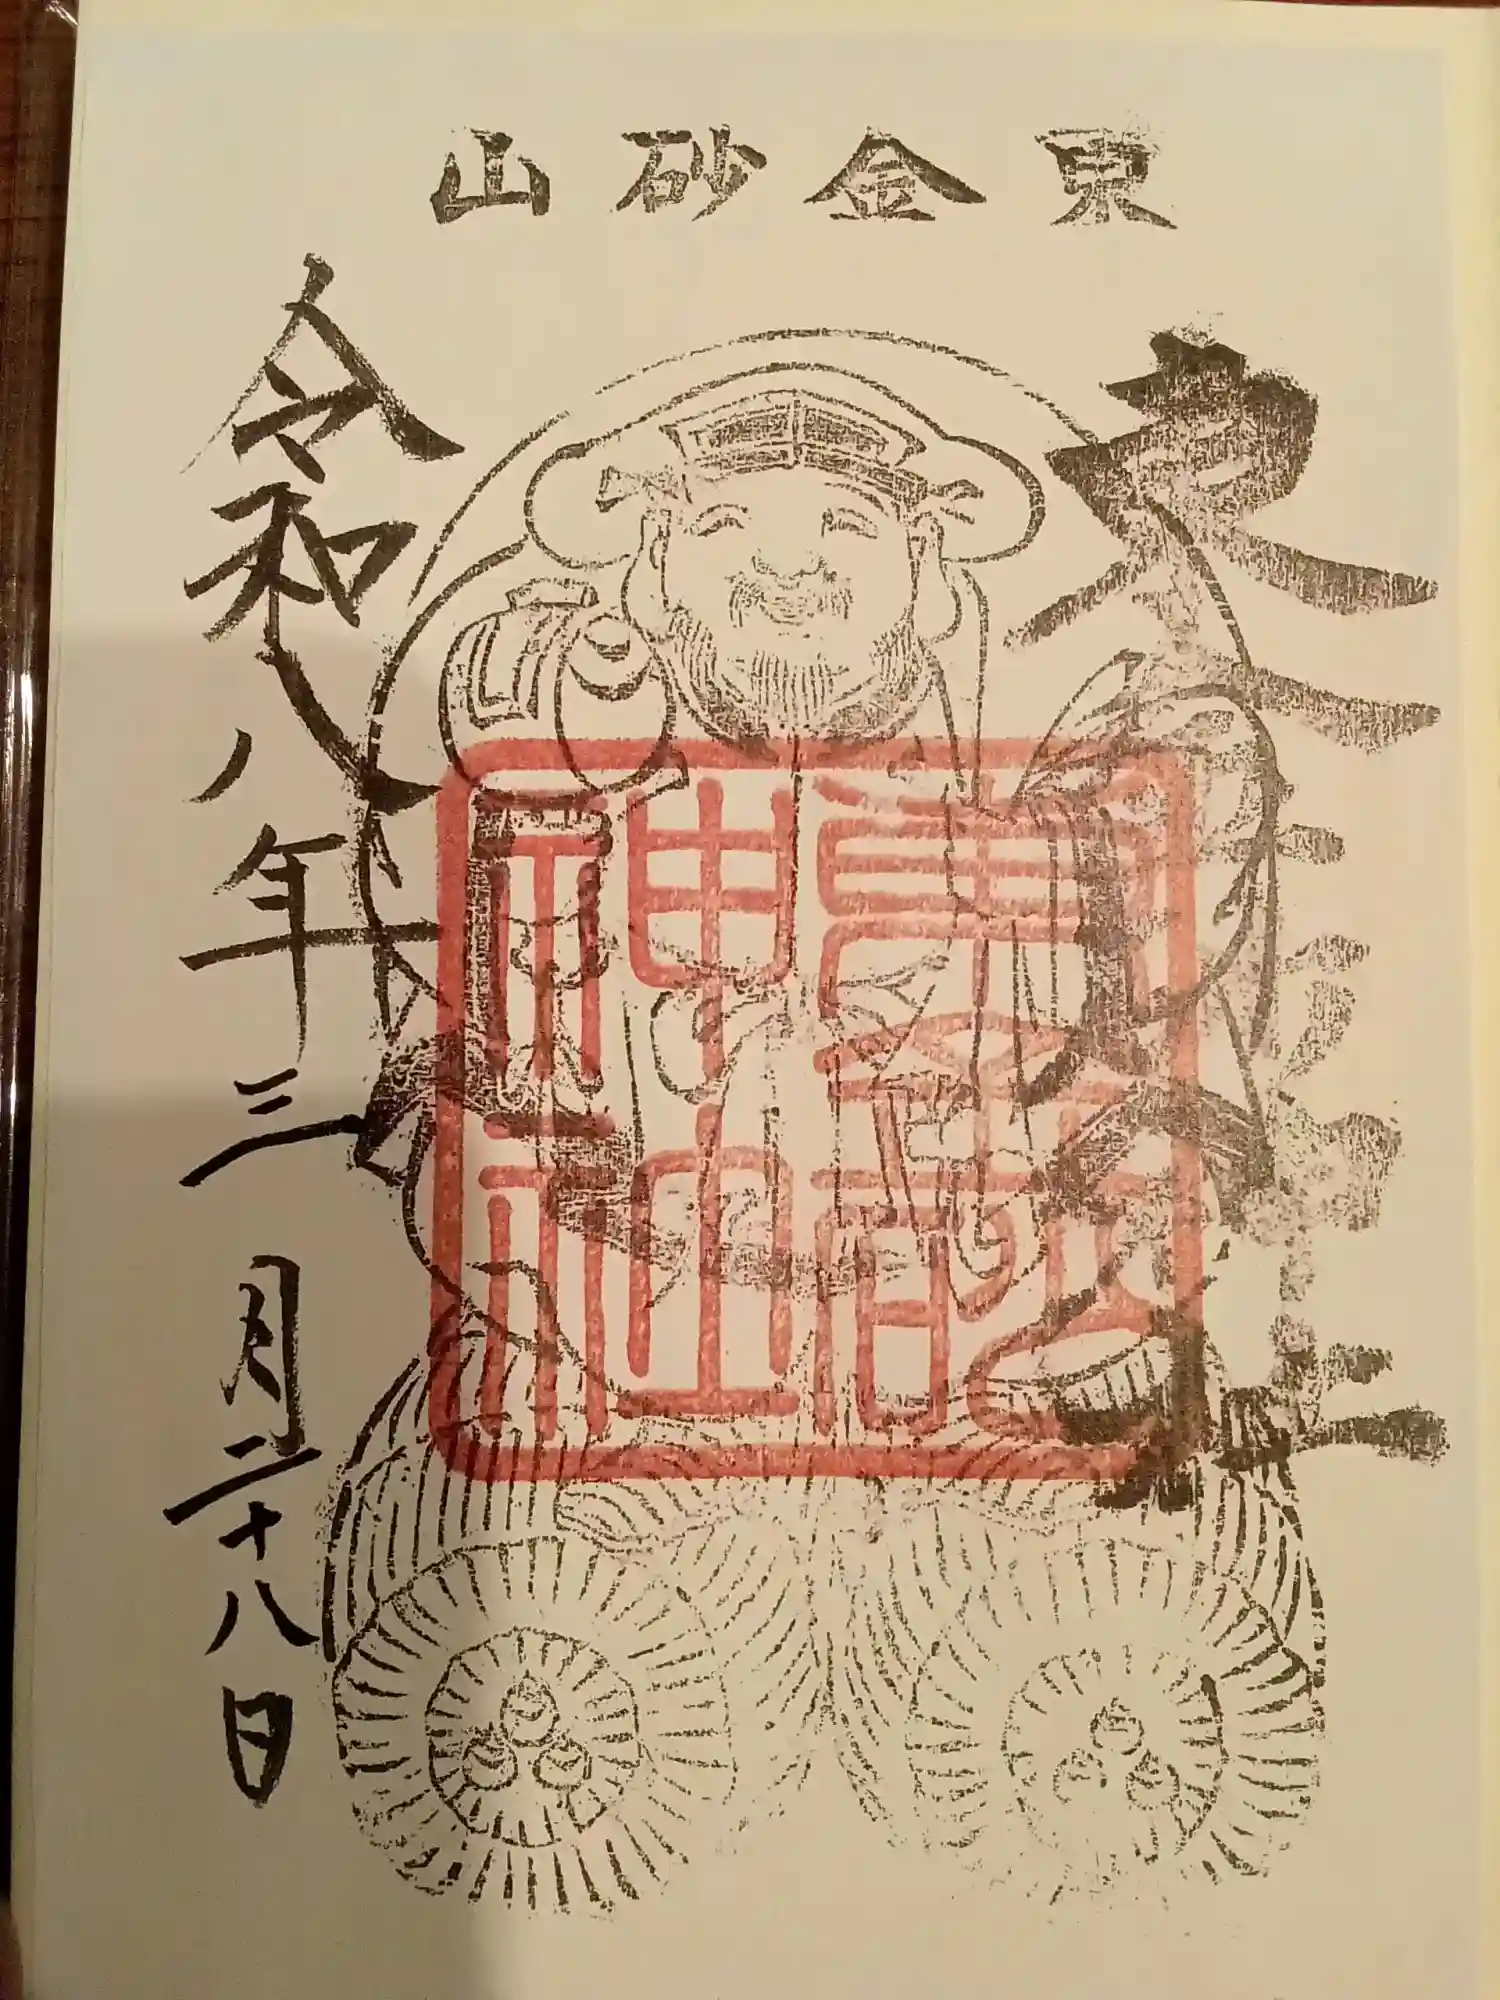 東金砂山
東金砂
神社
令和八年三月二十八日